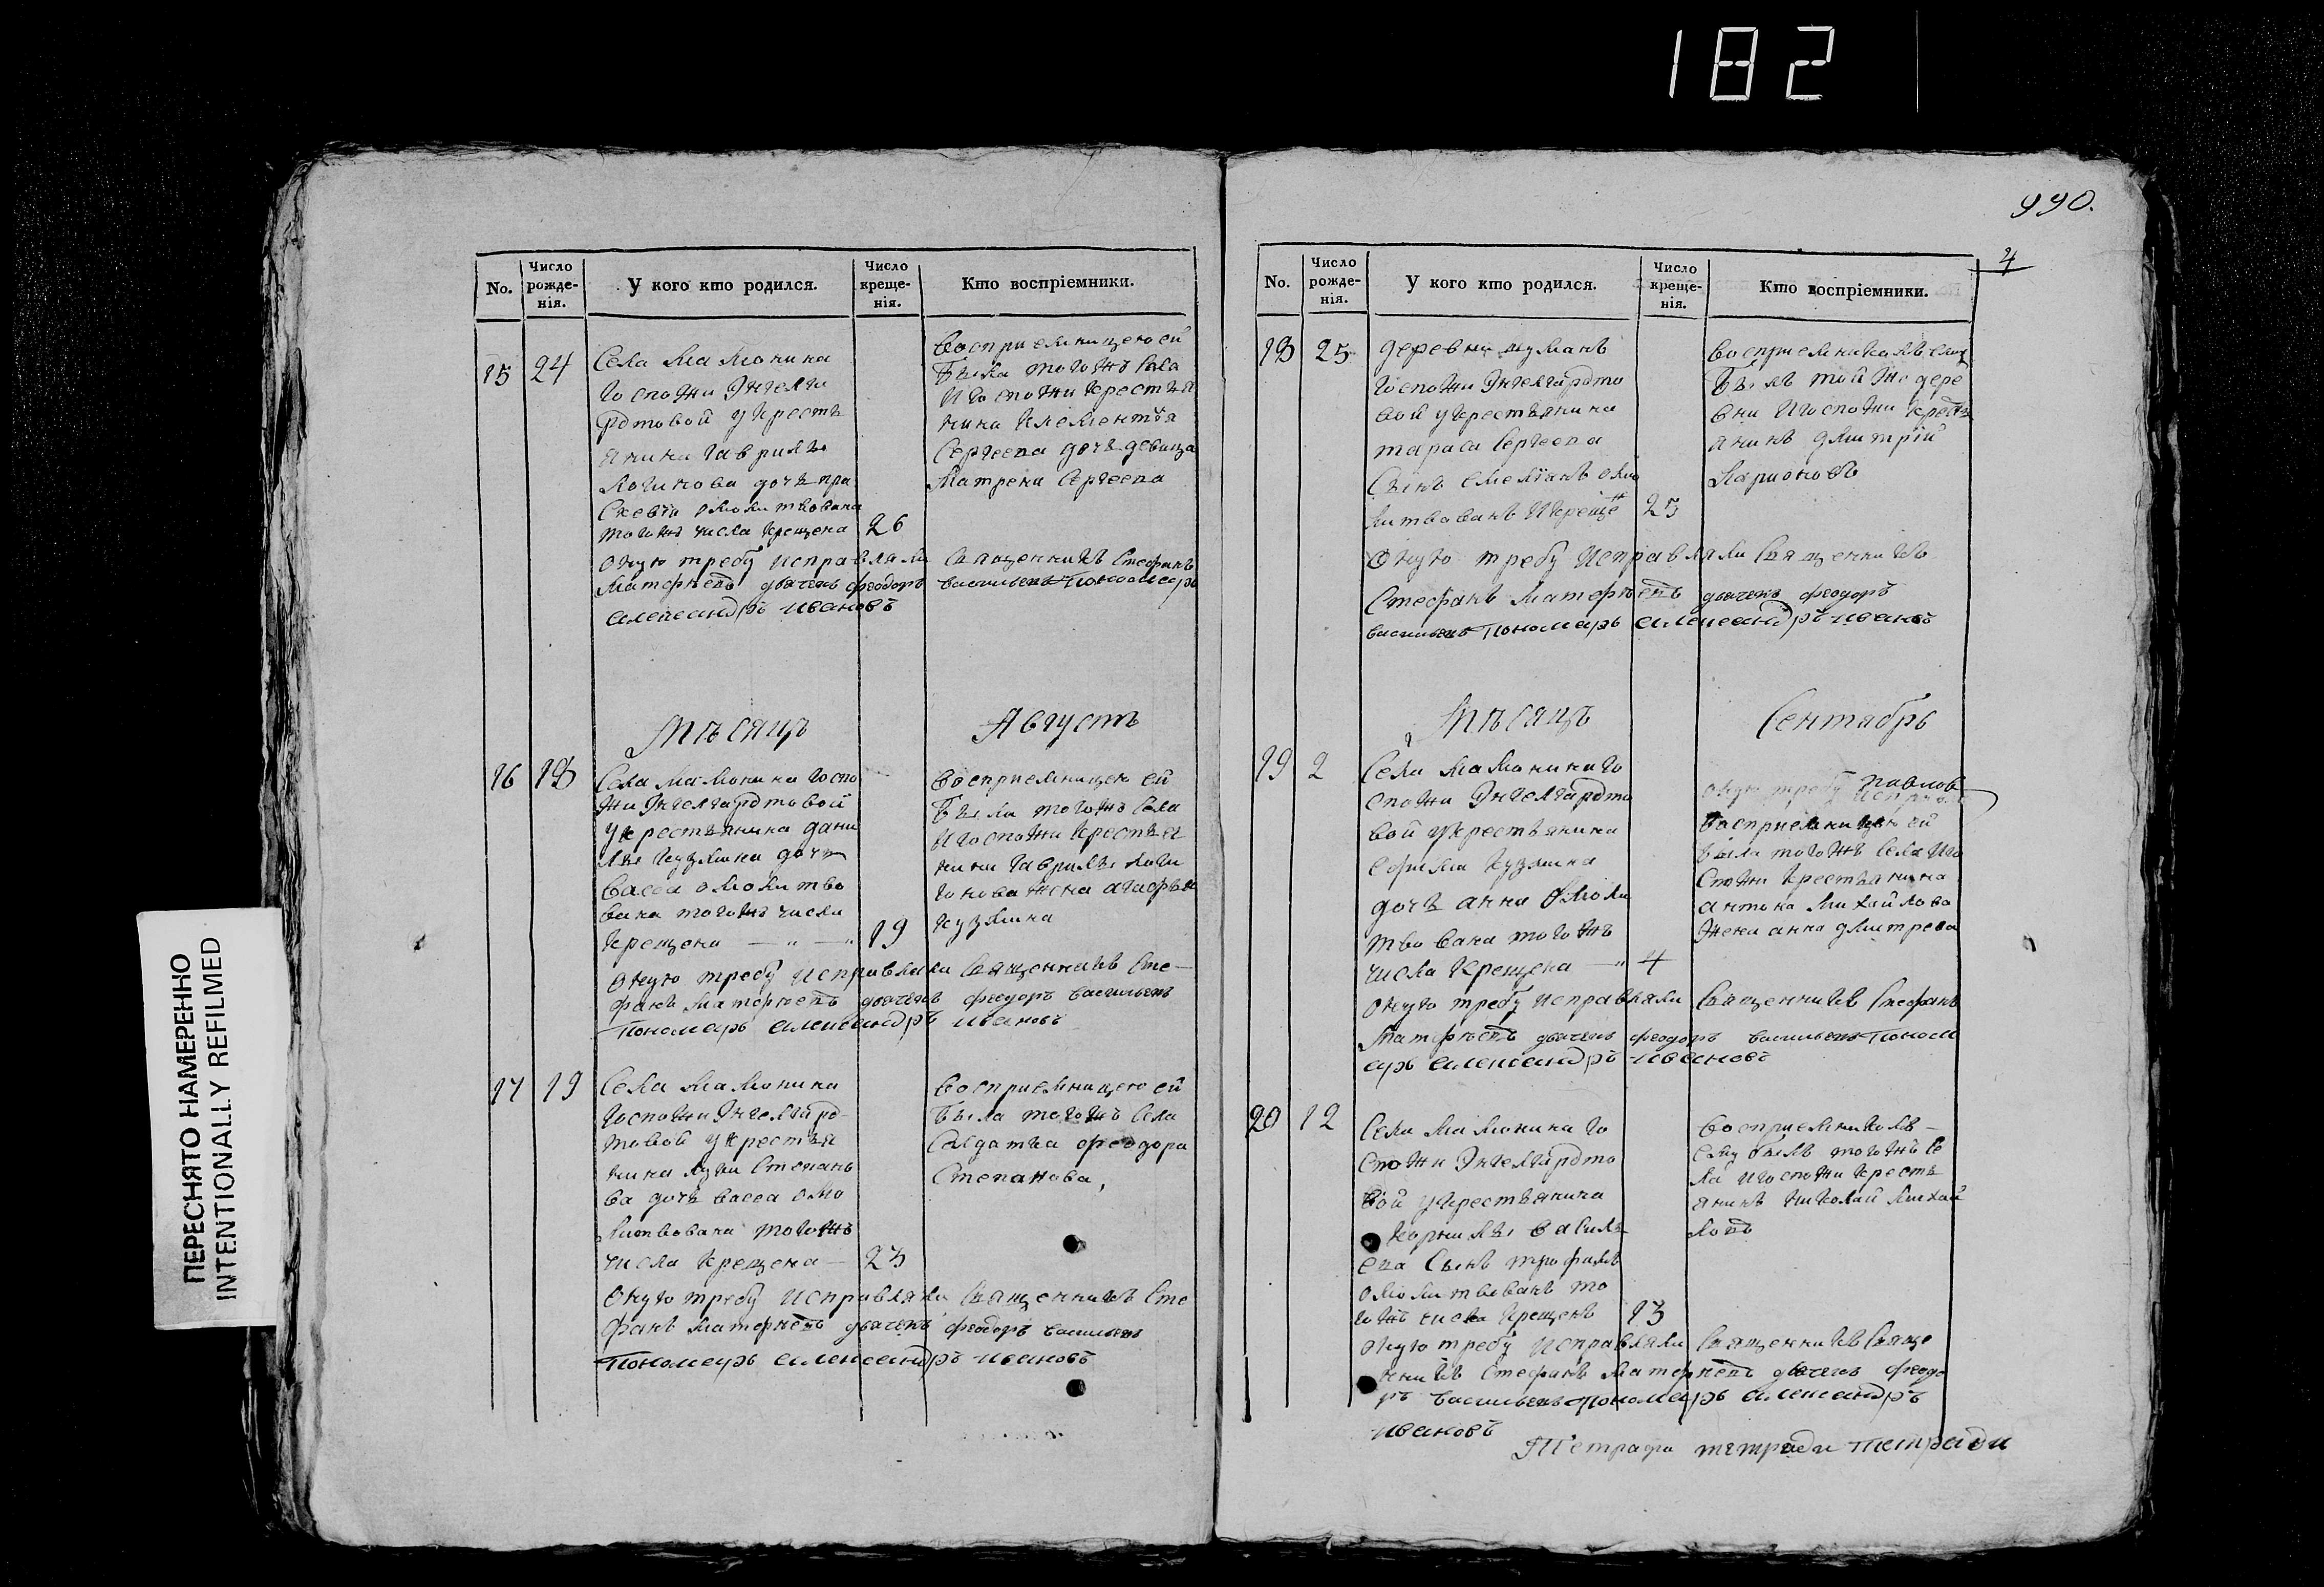 182
990.
4
ПЕРЕСНЯТО НАМЕРЕННО
INTENTIONALLY REFILMED
No.
Число рожде-нія.
У кого кто родился.
Число креще-нія.
Кто воспріемники.
15 24
Села Мамонина
Госпожи Энгелга
рдтовой у крестъ
янина Гаврилы
Логинова дочь Пра
сковия омолитвована
тогожъ числа крещена 26
Восприемницею ей
Была тогожъ села
И Госпожи крестья
нина Клементья
Сергеева дочь девица
Матрена Сергеева
Оную требу исправляли Священникъ Стефанъ
Матфеевъ дьячекъ феодоръ васильевъ Пономарь
александръ ивановъ
Мѣсяцъ Августъ
16 18
Села Мамонина Госпо
жи Энгелгардтовой
у крестьянина Дани
лы Кузмина дочь
Васса омолитво
вана тогожъ числа
крещена — „ — „ 19
Восприемницею ей
Была тогожъ села
И Госпожи крестья
нина Гаврилы Логи
нова жена Агафья
Кузмина
Оную требу исправляли Священникъ Сте-
фанъ Матфеевъ дьячекъ феодоръ васильевъ
Пономарь александръ ивановъ
17 19
Села Мамонина
Госпожи Энгелгард-
товой у крестья
нина Луки Степано
ва дочь Васса омо
литвована тогожъ
числа крещена — 23
Восприемницею ей
Была тогожъ села
Солдатка Феодора
Степанова,
Оную требу исправляли Священникъ Сте
фанъ Матфеевъ дьячекъ феодоръ васильевъ
Пономарь александръ ивановъ
No.
Число рожде-нія.
У кого кто родился.
Число креще-нія.
Кто воспріемники.
18 25
деревни
Госпожи Энгелгардто
вой у крестьянина
Тараса Сергеева
Сынъ Емелианъ омо
литвованъ и креще 25
Восприемникомъ ему
Былъ той же дере
вни и Госпожи кресть
янинъ Дмитрій
Ларионовъ
Оную требу исправляли Священникъ
Стефанъ Матфеевъ дьячекъ феодоръ
васильевъ Пономарь александръ ивановъ
Мѣсяцъ Сентябрь
19 2
Села Мамонина Го
спожи Энгелгардто
вой у крестьянина
Ефима Кузмина
дочь Анна омоли
твована тогожъ
числа крещена — „ 4
Оную требу
Восприемницею ей
Была тогожъ села И Го
спжи крестьянина
Антона Михайлова
Жена Анна Дмитрева
Оную требу исправляли Священникъ Стефанъ
Матфеевъ дьячекъ феодоръ васильевъ Поном
арь александръ ивановъ
20 12
Села Мамонина Го
спожи Энгелгардто
вой у крестьянина
Корнилы Василь
ева Сынъ Трофимъ
омолитвованъ то
гожъ числа крещенъ 13
Восприемникомъ —
ему былъ тогожъ се
ла и Госпожи кресть
янинъ Николай Михай
ловъ
Оную требу исправляли Священникъ Свяще
нникъ Стефанъ Матфеевъ дьячекъ феодо
ръ васильевъ Пономарь александръ
ивановъ
тетради тетради